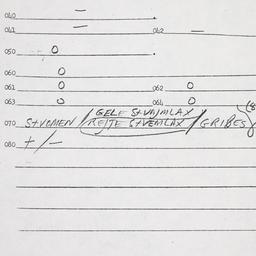 040 —
041 — 042 —
050 0
060 0
061 0 062 0
063 0 064 0
GELE StVAJMLAX
070 StVOMEN / REJTE StVEMLAX / GRIBES (8
080 +/-